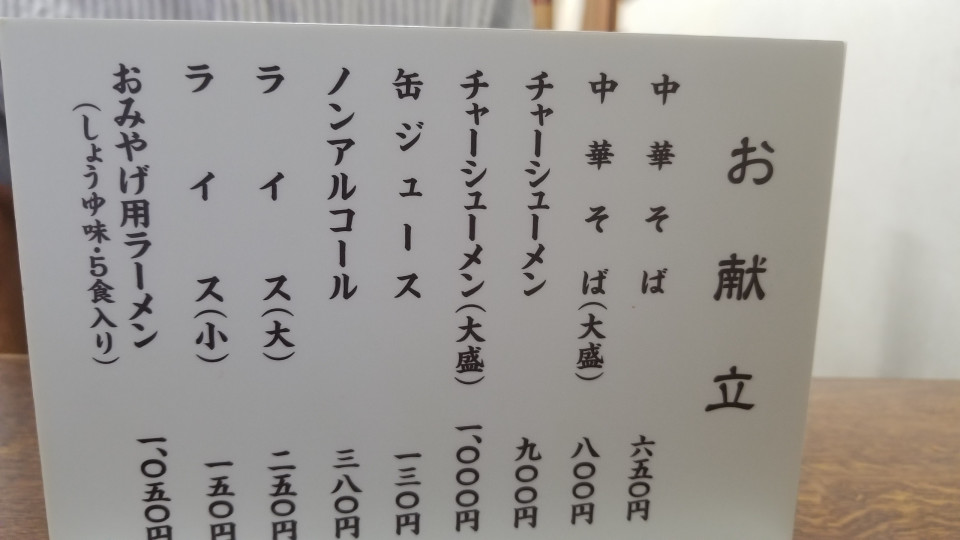 お献立
中華そば 六五〇円
中華そば(大盛) 八〇〇円
チャーシューメン 九〇〇円
チャーシューメン(大盛) 一、〇〇〇円
缶ジュース 一三〇円
ノンアルコール 三八〇円
ライス(大) 二五〇円
ライス(小) 一五〇円
おみやげ用ラーメン 一、〇五〇円
(しょうゆ味・5食入り)